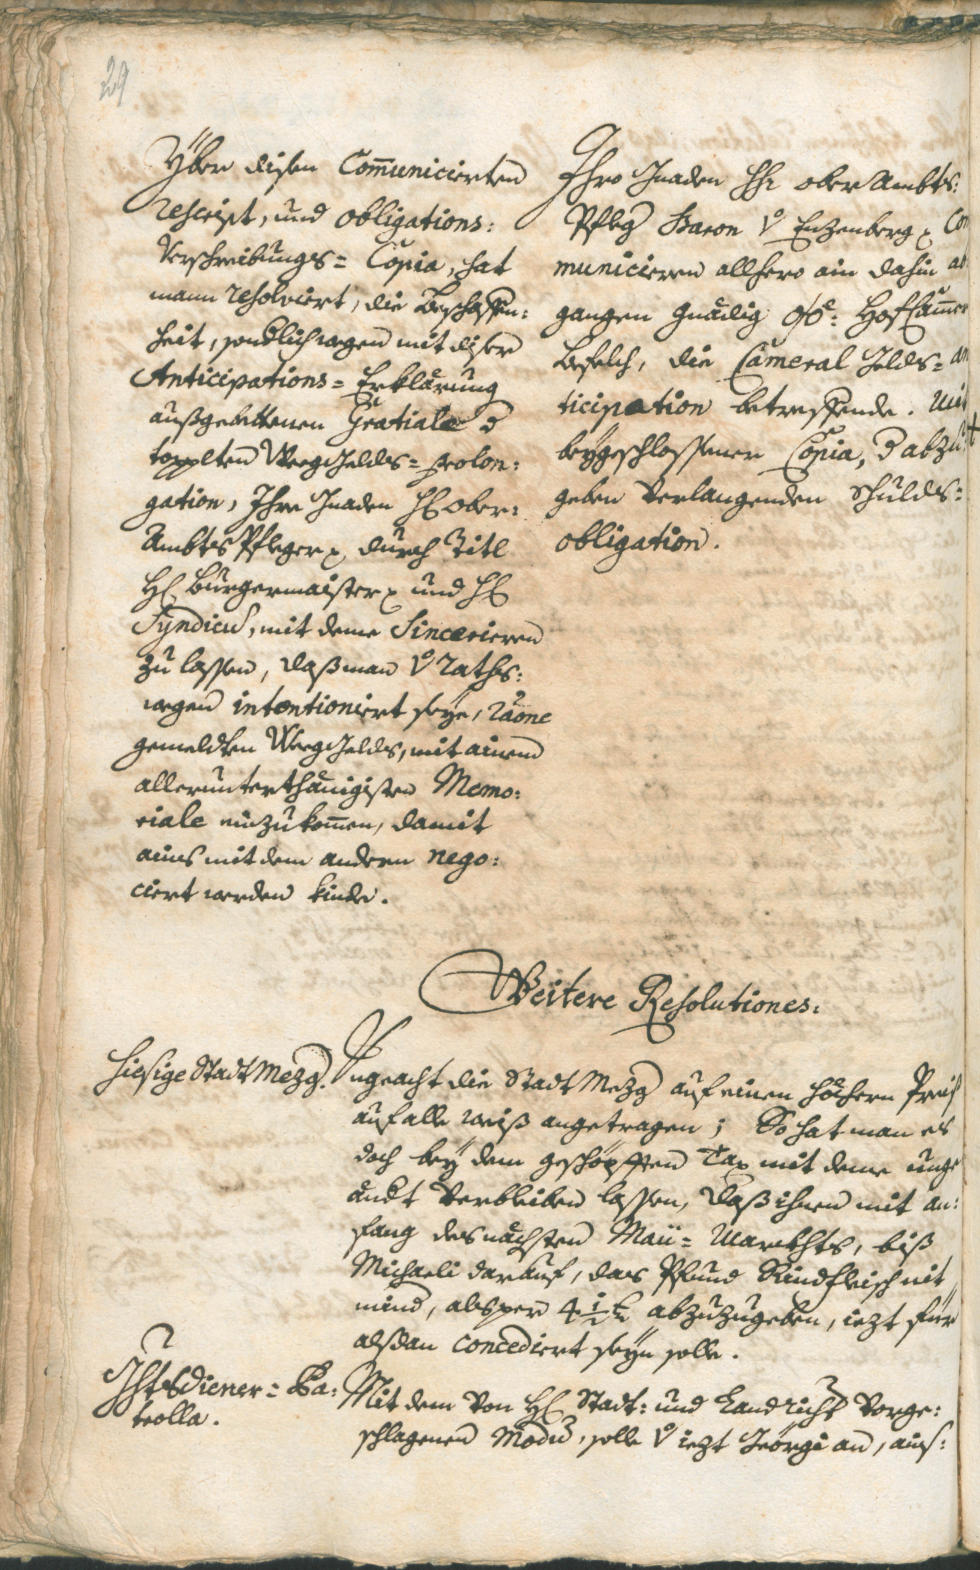 29
Yber disen Com̄unicierten
rescript, und obligations:
Verschreibungs= Copia, hat
mann resolviert, die Beschaffen:
heit, sondlich wegen mit diser
Anticipations= Erklärung
außgebettenen Gratiale d
topplten Weeg Gelds= prolon:
gation, Ihro Gnaden H: ober:
Ambts Pfleger durch Titl
H: Burgermaister und H:
Syndicus, mit deme Sincerieren
zu lassen, daß man v Raths:
wegen intentioniert seye, raõne
gemeldten Weeg Gelds, mit ainem
allerunterthänigisten Memo:
riale einzukom̄en, damit
ains mit dem andern nego:
ciert werden kinde.
Ihro Gnaden H: ober Ambts:
Pfleg Baron v Enzenberg Com
municieren allhero ain dahin
gangen gnädig Hofkam̄er
Befelch, die Cameral Gelds= an
ticipation betreffende. Mit
beygeschlossener Copia, d abzu
geben verlangenden Schulds=
obligation.
Weitere Resolutiones:
Hiesige Stadt Mezg.
Ungeacht die Stadt Mezg auf einen höhern Preiß
auf alle weiß angetragen; So hat man es
doch bey dem geschöpfften Tax mit deme unge
ändt verbleiben lassen, daß ihnen mit an:
fang des nächsten Maii= Markhts, biß
Michaeli darauf, das Pfund Rindfleisch nit
mind, als per 4 1/2 x abzuzugeben, iezt für
alsdan concediert seyn solle.
Ghtsdiener= Pa:
trolla.
Mit dem von H: Stadt: und Landricht vorge:
schlagenen Modu, solle v iezt Geörgi an, auf: